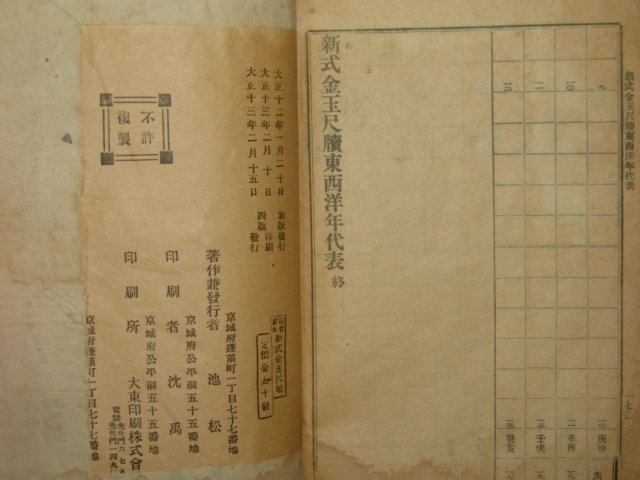 新式金玉尺牘東西洋年代表
九
一〇
一一
一二
庚申
辛酉
壬戌
癸亥
新式金玉尺牘東西洋年代表 終
大正十二年一月二十日 初版發行
大正十三年二月十日 四版印刷
大正十三年二月十五日 四版發行
新式金玉尺牘
定價金五十錢
京城府蓬萊町一丁目七十七番地
著作兼發行者 池松
京城府公平洞五十五番地
印刷者 沈禹
京城府公平洞五十五番地
印刷所 大東印刷株式會
不許
複製
京城府蓬萊町一丁目七十七番地